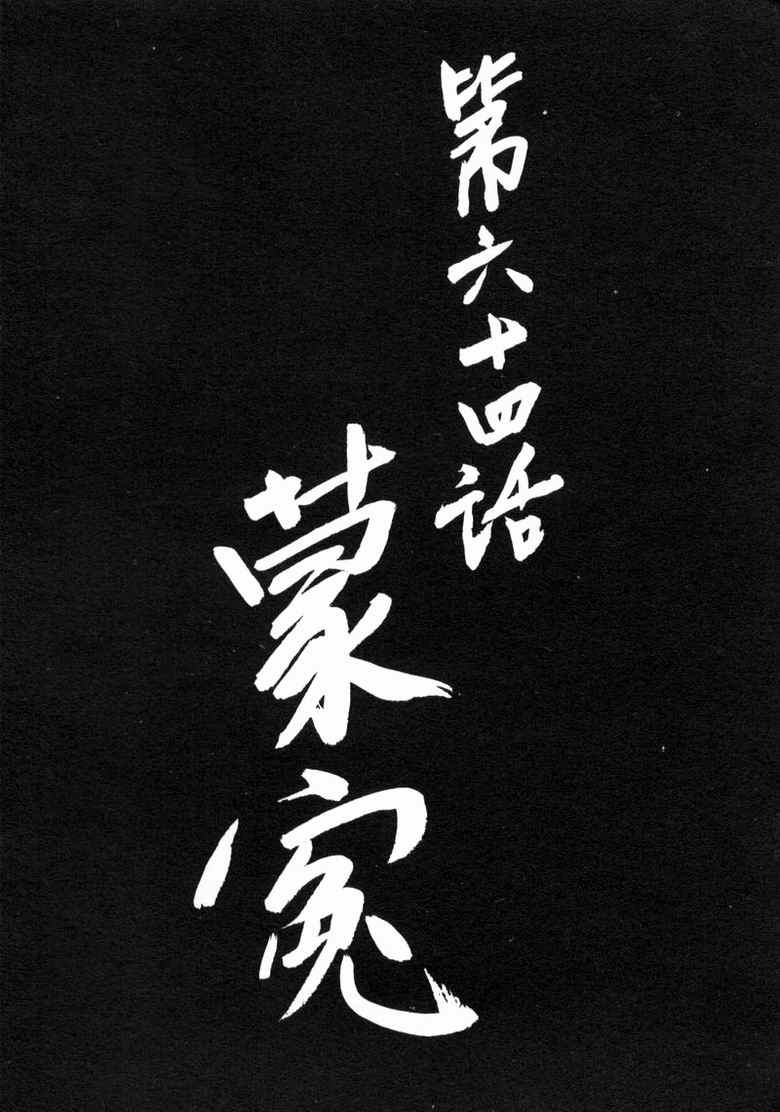 第六十四話
蒙冤